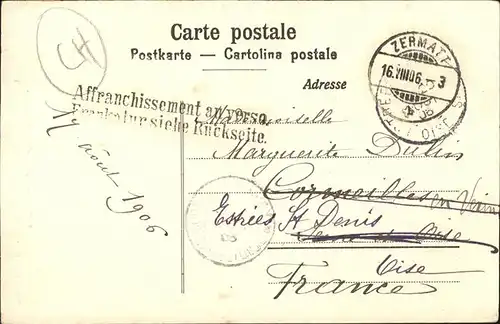 Carte postale
Postkarte — Cartolina postale
Adresse
ZERMATT
16.VIII.06. 3
Affranchissement au verso.
Frankatur siehe Rückseite.
Mademoiselle
Marguerite Dulin
Cormeilles en Vexin
Estrées St Denis
Seine et Oise
Oise
France
août 1906